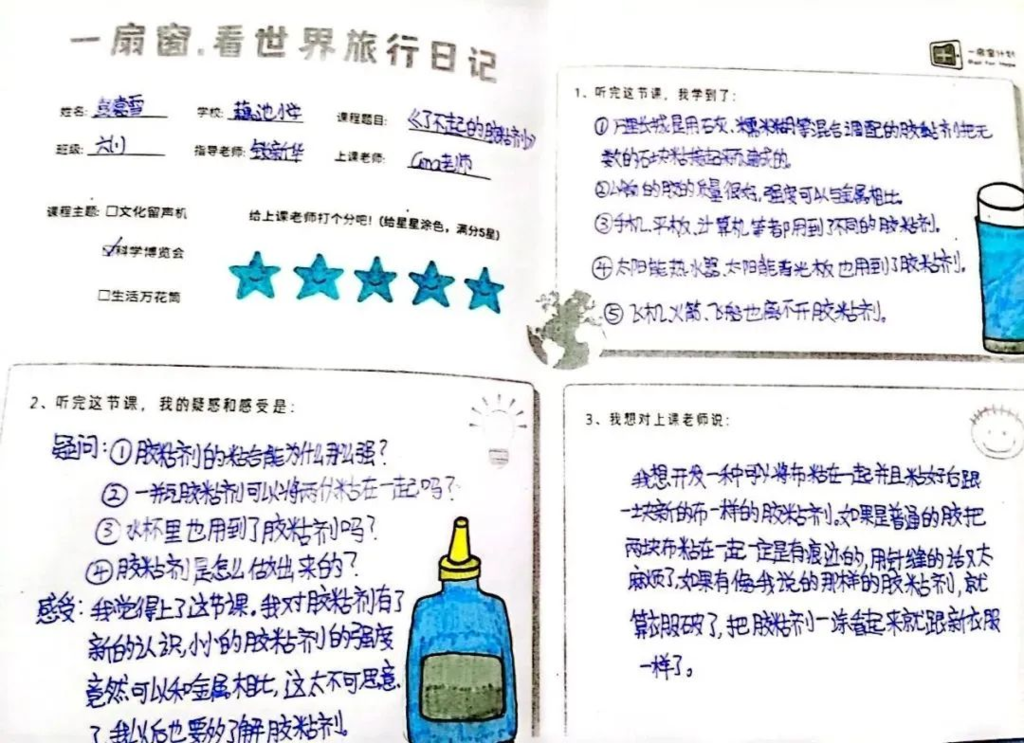 一扇窗.看世界旅行日记
姓名: 学校: 池小学 课程题目: 《了不起的胶粘剂》
班级: 六(1) 指导老师: 新华 上课老师: 老师
课程主题: □文化留声机
☑科学博览会
□生活万花筒
给上课老师打个分吧!(给星星涂色,满分5星)
一扇窗计划
1、听完这节课,我学到了:
①万里长城是用石灰、糯米糊等混合调配的胶黏剂把无
数的石块粘接起来而成的。
②的胶的质量很好,强度可以与金属相比。
③手机、平板、计算机等都用到了不同的胶粘剂。
④太阳能热水器、太阳能看光板也用到了胶粘剂。
⑤飞机、火箭、飞船也离不开胶粘剂。
2、听完这节课,我的疑惑和感受是:
疑问:①胶粘剂的粘合能为什么那么强?
②一瓶胶粘剂可以将两个人粘在一起吗?
③水杯里也用到了胶粘剂吗?
④胶粘剂是怎么做出来的?
感受:我觉得上了这节课,我对胶粘剂有了
新的认识,小小的胶粘剂的强度
竟然可以和金属相比,这太不可思意
了,我以后也要多了解胶粘剂。
3、我想对上课老师说:
我想开发一种可以将布粘在一起并且粘好后跟
一块新的布一样的胶粘剂。如果是普通的胶把
两块布粘在一起一定是有痕迹的,用针缝的话又太
麻烦了,如果有像我说的那样的胶粘剂,就
算衣服破了,把胶粘剂一涂看起来就跟新衣服
一样了。